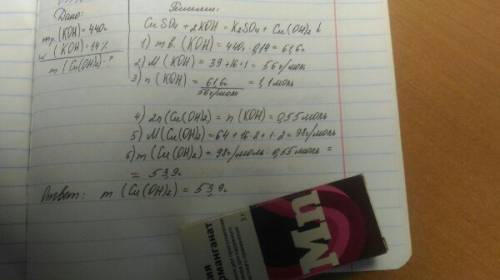 Дано:
mр.(KOH) = 440г
ω(KOH) = 14%
m(Cu(OH)₂) - ?
Решение:
CuSO₄ + 2KOH = K₂SO₄ + Cu(OH)₂ ↓
1) m в. (KOH) = 440г · 0,14 = 61,6г
2) M (KOH) = 39+16+1 = 56 г/моль
3) n (KOH) = 61,6г / 56г/моль = 1,1 моль
4) 2n(Cu(OH)₂) = n(KOH) = 0,55 моль
5) M(Cu(OH)₂) = 64 + 16·2 + 1·2 = 98г/моль
6) m (Cu(OH)₂) = 98г/моль · 0,55 моль =
= 53,9г
Ответ: m (Cu(OH)₂) = 53,9г.
Mn
манганат
3 г